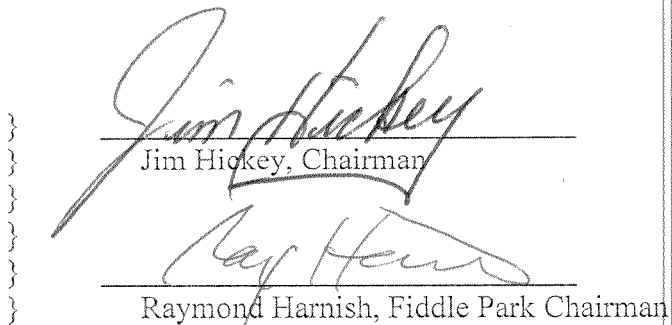 Jim Hickey
Jim Hickey, Chairman
Ray Harnish
Raymond Harnish, Fiddle Park Chairman